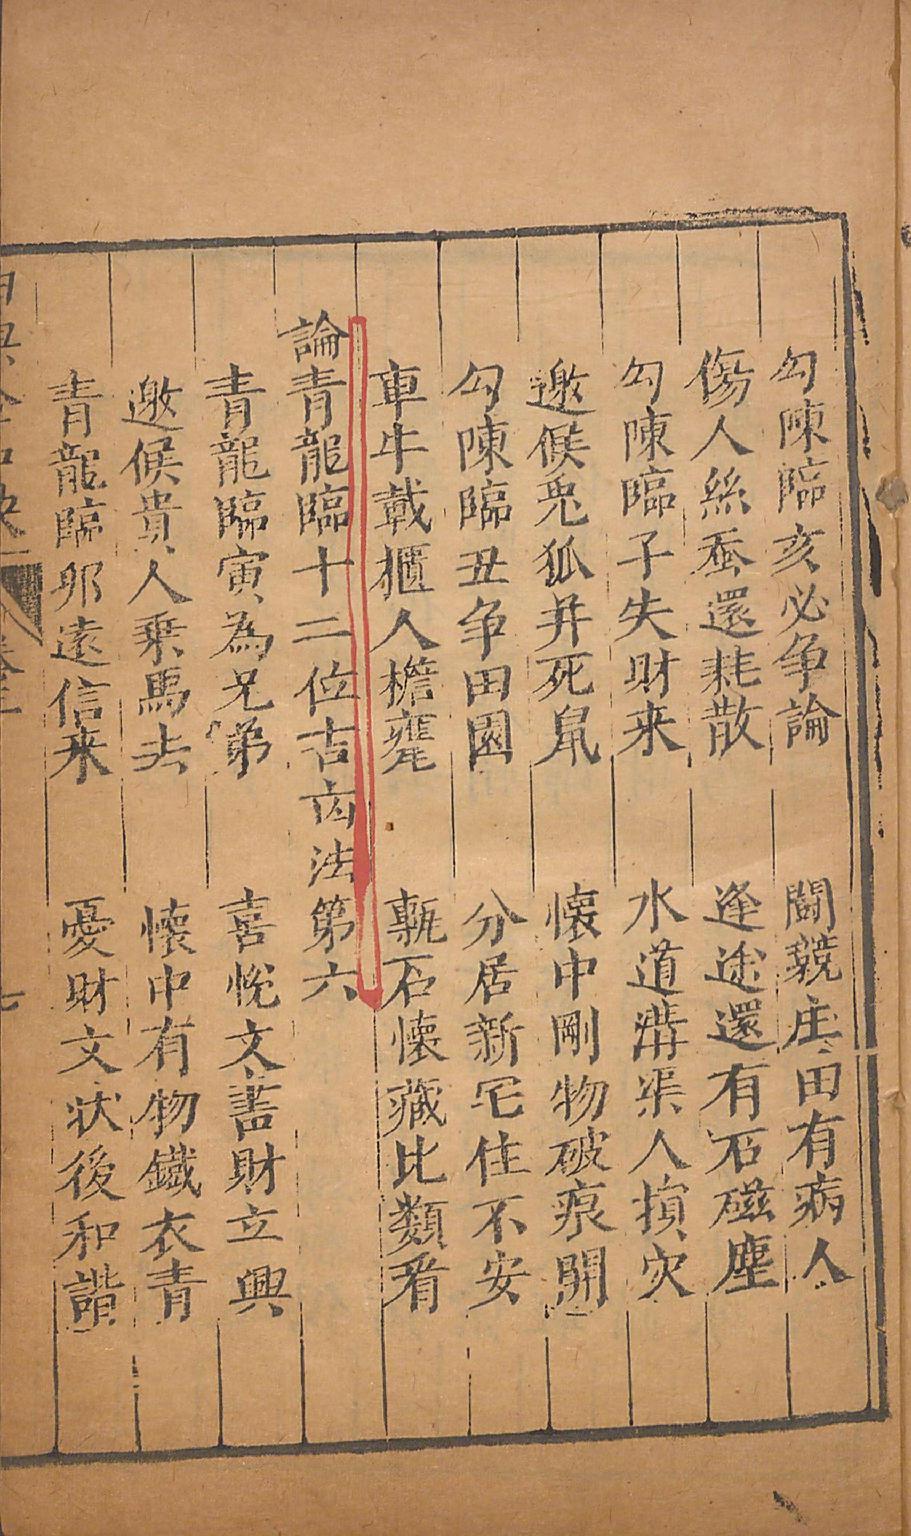 勾陳臨亥必争論　鬬競庄田有病人
傷人絲蚕還耗散　逢途還有石磁塵
勾陳臨子失財来　水道溝渠人損灾
邀候兎狐并死鼠　懷中剛物破痕開
勾陳臨丑争田園　分居新宅住不安
車牛載攌人檐甕　石懷藏比類看
論青龍臨十二位吉凶法第六
青龍臨寅為兄弟　喜悅文書財立興
邀候貴人乗馬去　懷中有物鐵衣青
青龍臨卯遠信来　憂財文状後和諧